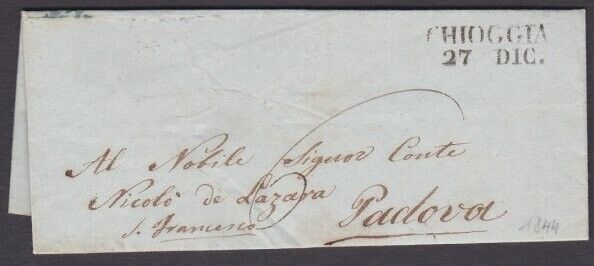 CHIOGGIA
27 DIC.
Al Nobile Signor Conte
Nicolò de Lazara
S. Francesco
Padova
1844